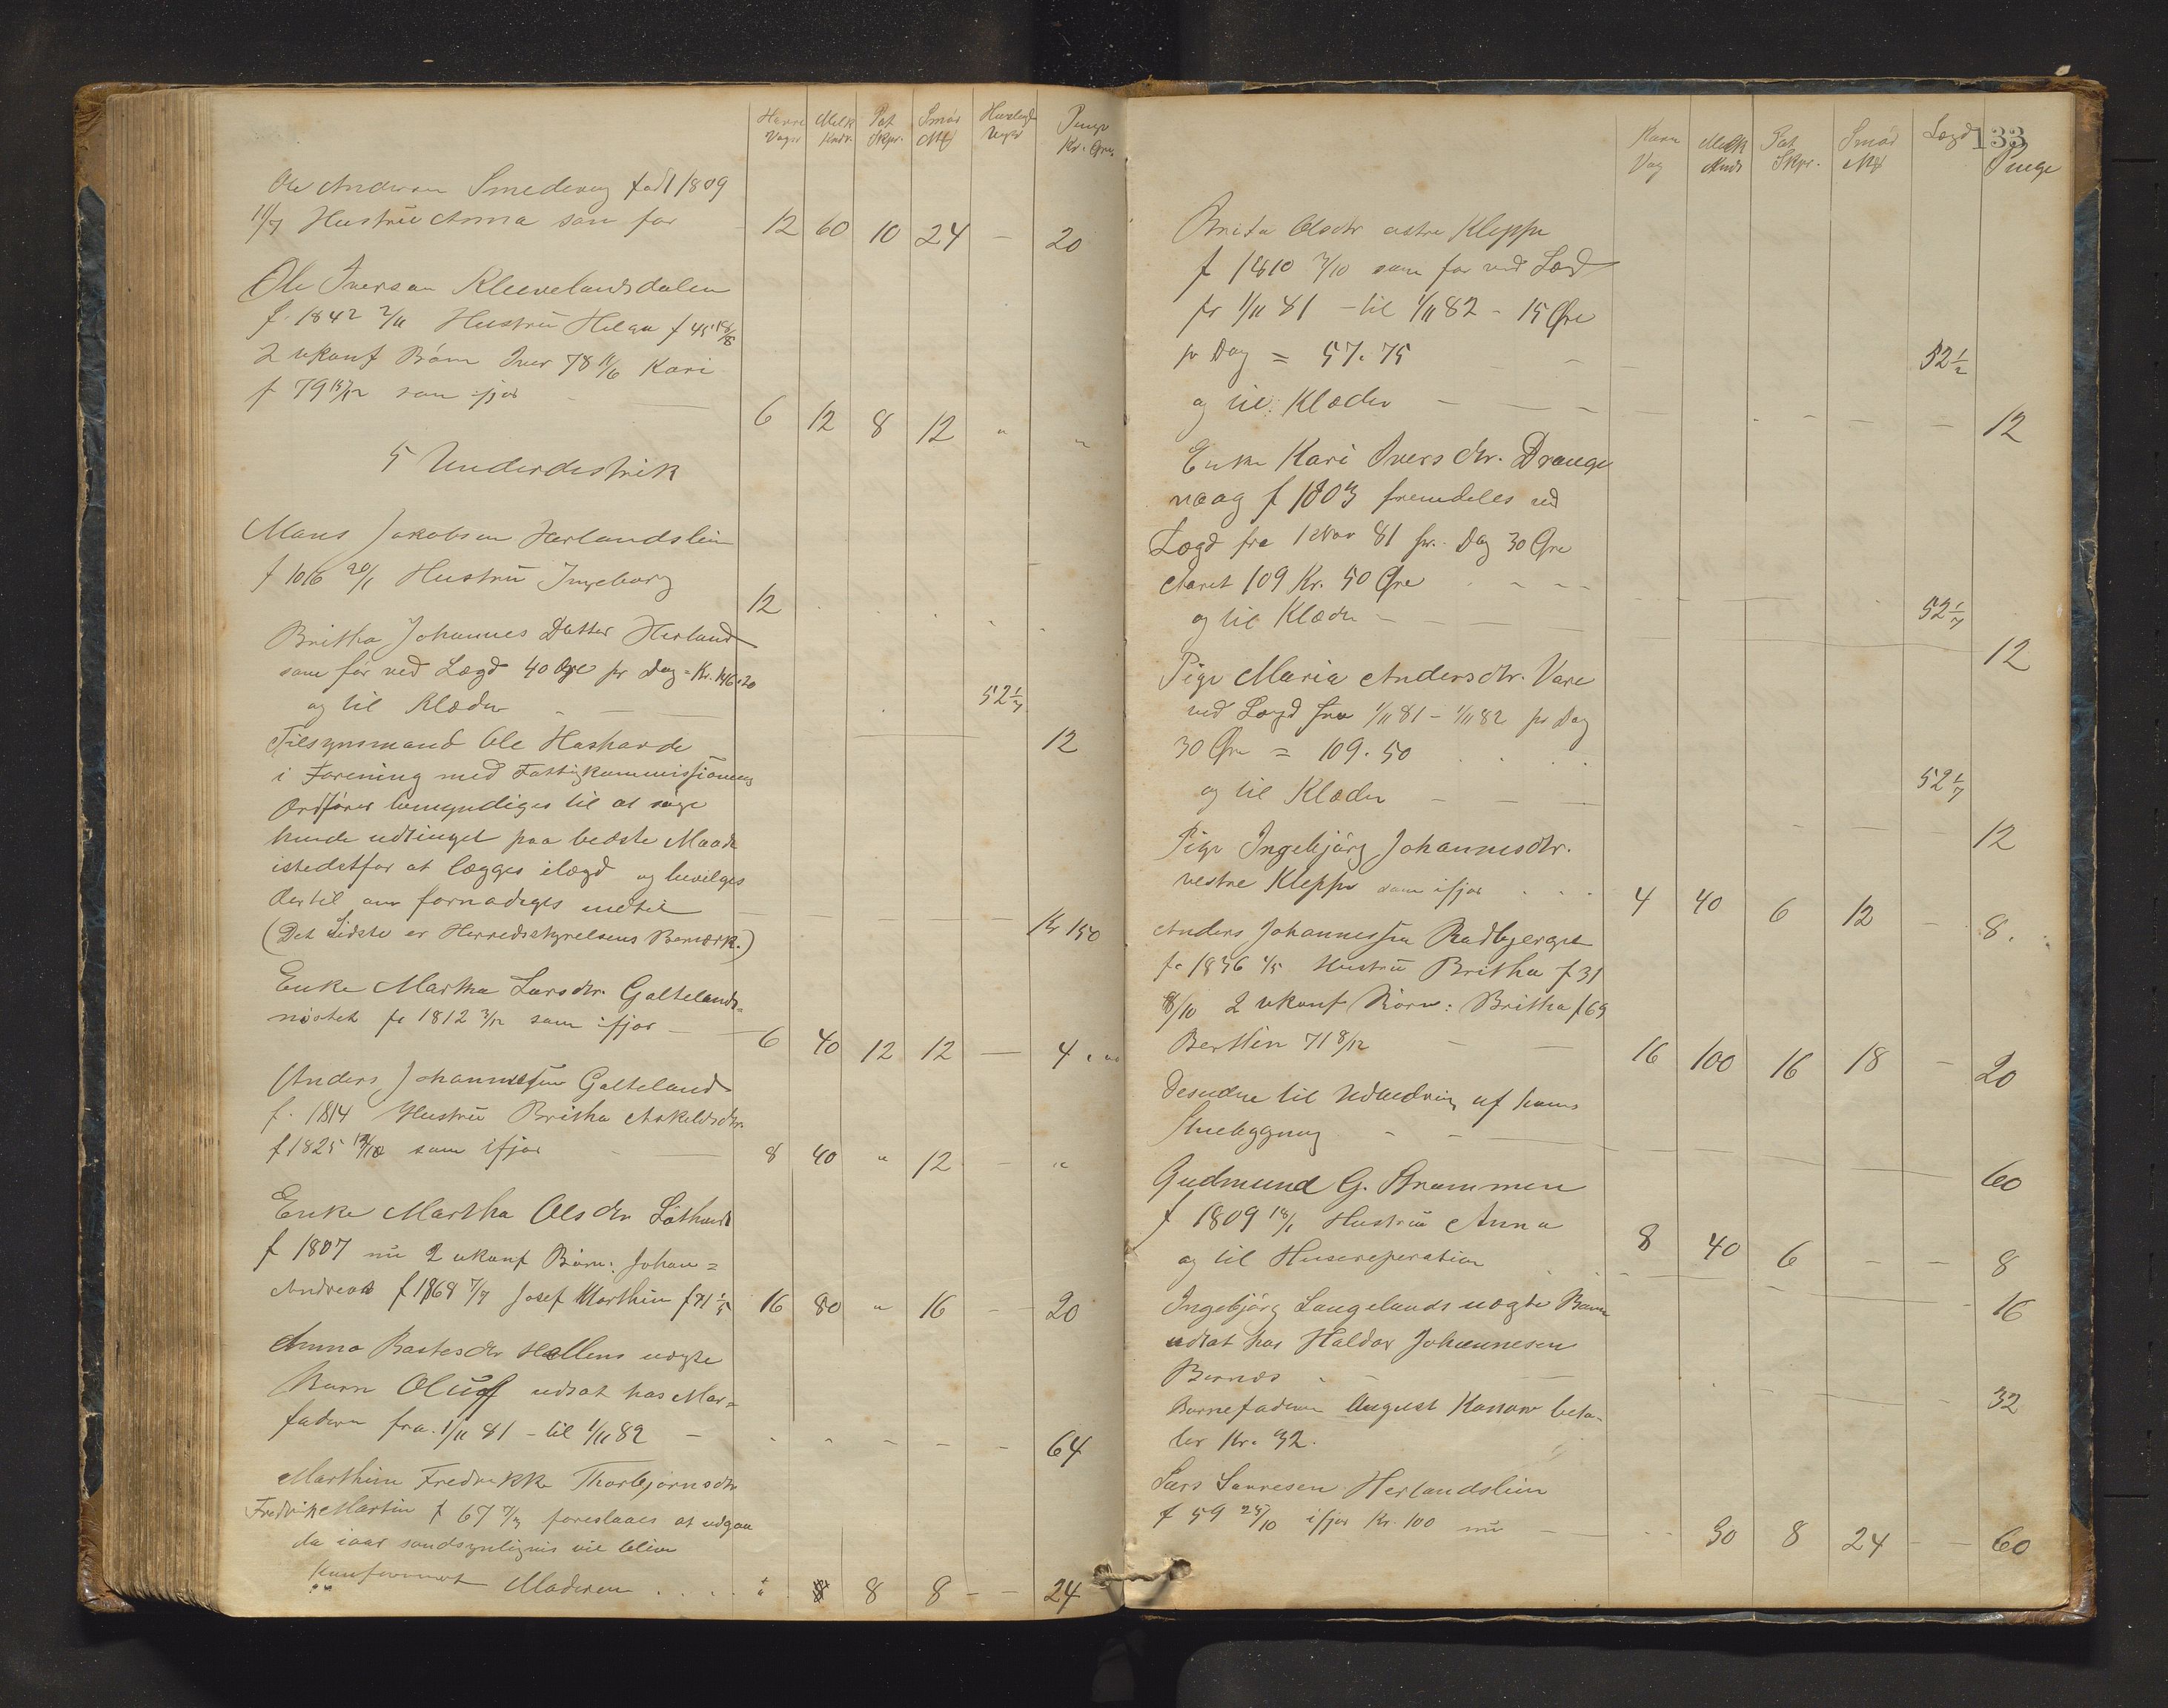 Melk Pot Smör Penge
Kr. Øre
Ole Smedevig født 1809
11/7 Hustrü Anna som før - 12 60 10 24 — 20
Ole Iversen Kleevelandsdalen
f. 1842 2/11 Hustrü Helga f 45
2 ukonf Börn Iver 78 11/6 Kari
f 79 som ifjor — 6 12 8 12 " "
5 Underdestrik
Mons Jakobsen Herlandslien
20/1 Hustrü Ingeborg — 12
Britha Johannes Datter Herland
som før ved Lægd 40 Øre pr Dag = Kr. 146.20
og til Klæder — 52 1/7
12
Tilsynsmand Ole
i Forening med Fattigkommissionens
Ordfører bemyndiges til at søge
hende udtinget paa bedste Maade
istedetfor at lægges ilægd og bevilges
dertil om fornødiges indtil
(Det Sidste er Herredsstyrelsens Bemærk.) Kr 150
Enke Martha Larsdtr. Galtelands=
nöstet fø 1812 3/12 som ifjor — 6 40 12 12 — 4
Anders Johannessen Galteland
f. 1814 Hustrü Britha Askeldsdtr.
f 1825 som ifjor — 8 40 " 12 — "
Enke Martha Olsdtr
f 1807 nü 2 ukonf Börn: Johan=
Andreas f 1868 7/7 Josef Marthin f 71 1/5 16 80 " 16 — 20
Anna Bastesdtr Hellens uægte
Barn Oluf udsat hos Mor=
faderen fra 1/11 81 - til 1/11 82 — 64
Marthin Fredrikke Thorbjørnsdtr
Fredrik Martin f 67 foreslaaes at udgaa
da iaar sandsynligvis vil blive
konfirmeret Moderen . . . 8 8 — — 24
133
Vag Melk Pot Skpr. Smör Lægd Penge
Brita Olsdtr østre Kleppe
f 1810 7/10 som før ved Lægd
fr 1/11 81 - til 1/11 82 - 15 Øre
pr Dag = 57.75 — 52 1/2
og til Klæder — 12
Enke Kari Iversdtr. Drange
vaag f 1803 fremdeles ved
Lægd fra 1 Nov 81 pr. Dag 30 Øre
Aaret 109 Kr. 50 Øre
og til Klæder — 52 1/7
12
Pige Maria Andersdtr. Vare
ved Lægd fra 1/11 81 - 1/11 82 pr Dag
30 Øre = 109.50
og til Klæder — 52 1/7
12
Pige Ingebjørg Johannesdtr.
vestre Kleppe som ifjor . . . 4 40 6 12 — 8.
Anders Johannessen Rødbjerget
fø 1836 4/5 Hustrü Britha f 31
8/10 2 ukonf Börn: Britha f 69
Berthin 71 8/12 — 16 100 16 18 — 20
Desuden til Udbedring af hans
Stuebygning — 60
Gudmund G. Strammen
f 1809 18/1 Hustrü Anna 8 40 6 — — 8
og til Husereperation — 16
Ingebjörg Langelands uægte Barn
udsat hos Haldor Johannesen
Bornes — 32
Barnefaderen August Konow beta-
ler Kr. 32.
Lars Larresen Herlandslien
f 59 25/10 ifjor Kr. 100 nü — 30 8 24 — 60